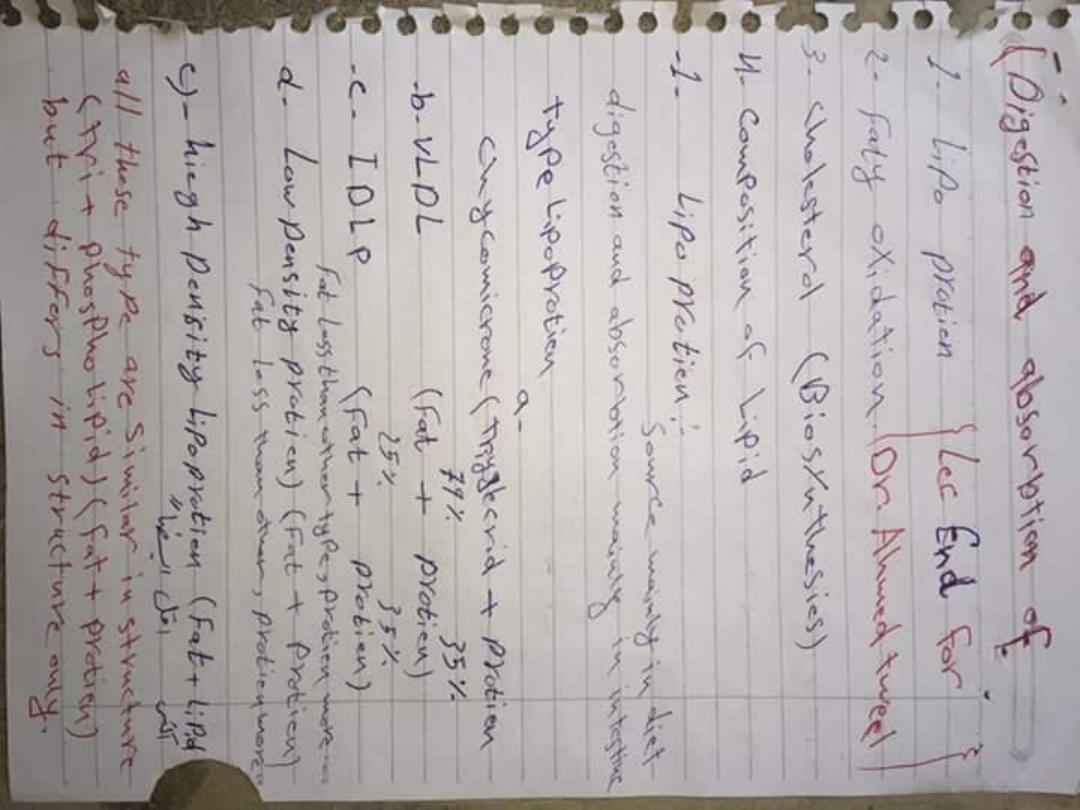 (Digestion and absorbtion of
1- Lipo protien {Lec End for}
2- faty oxidation.. (Dr. Ahmed tweel)
3- cholesterol (Biosynthesies)
4- Composition of Lipid
-1- Lipo protien :-
Source mainly in diet
digestion and absorbtion mainly in intestine
type Lipoprotien
a-
chycomicrone (
+ protion
79% 35%
-b- VLDL (fat + protien)
25% 35%
-c- IDLP (fat + protien)
fat less than other type, protien more
d- Low Density protien) (fat + protien)
fat less than other, protien more
e)- hiegh Density Lipoprotien (fat + Lipid
all these type are similar in structure
(tri + phospholipid) (fat + protien)
but differs in structure only.